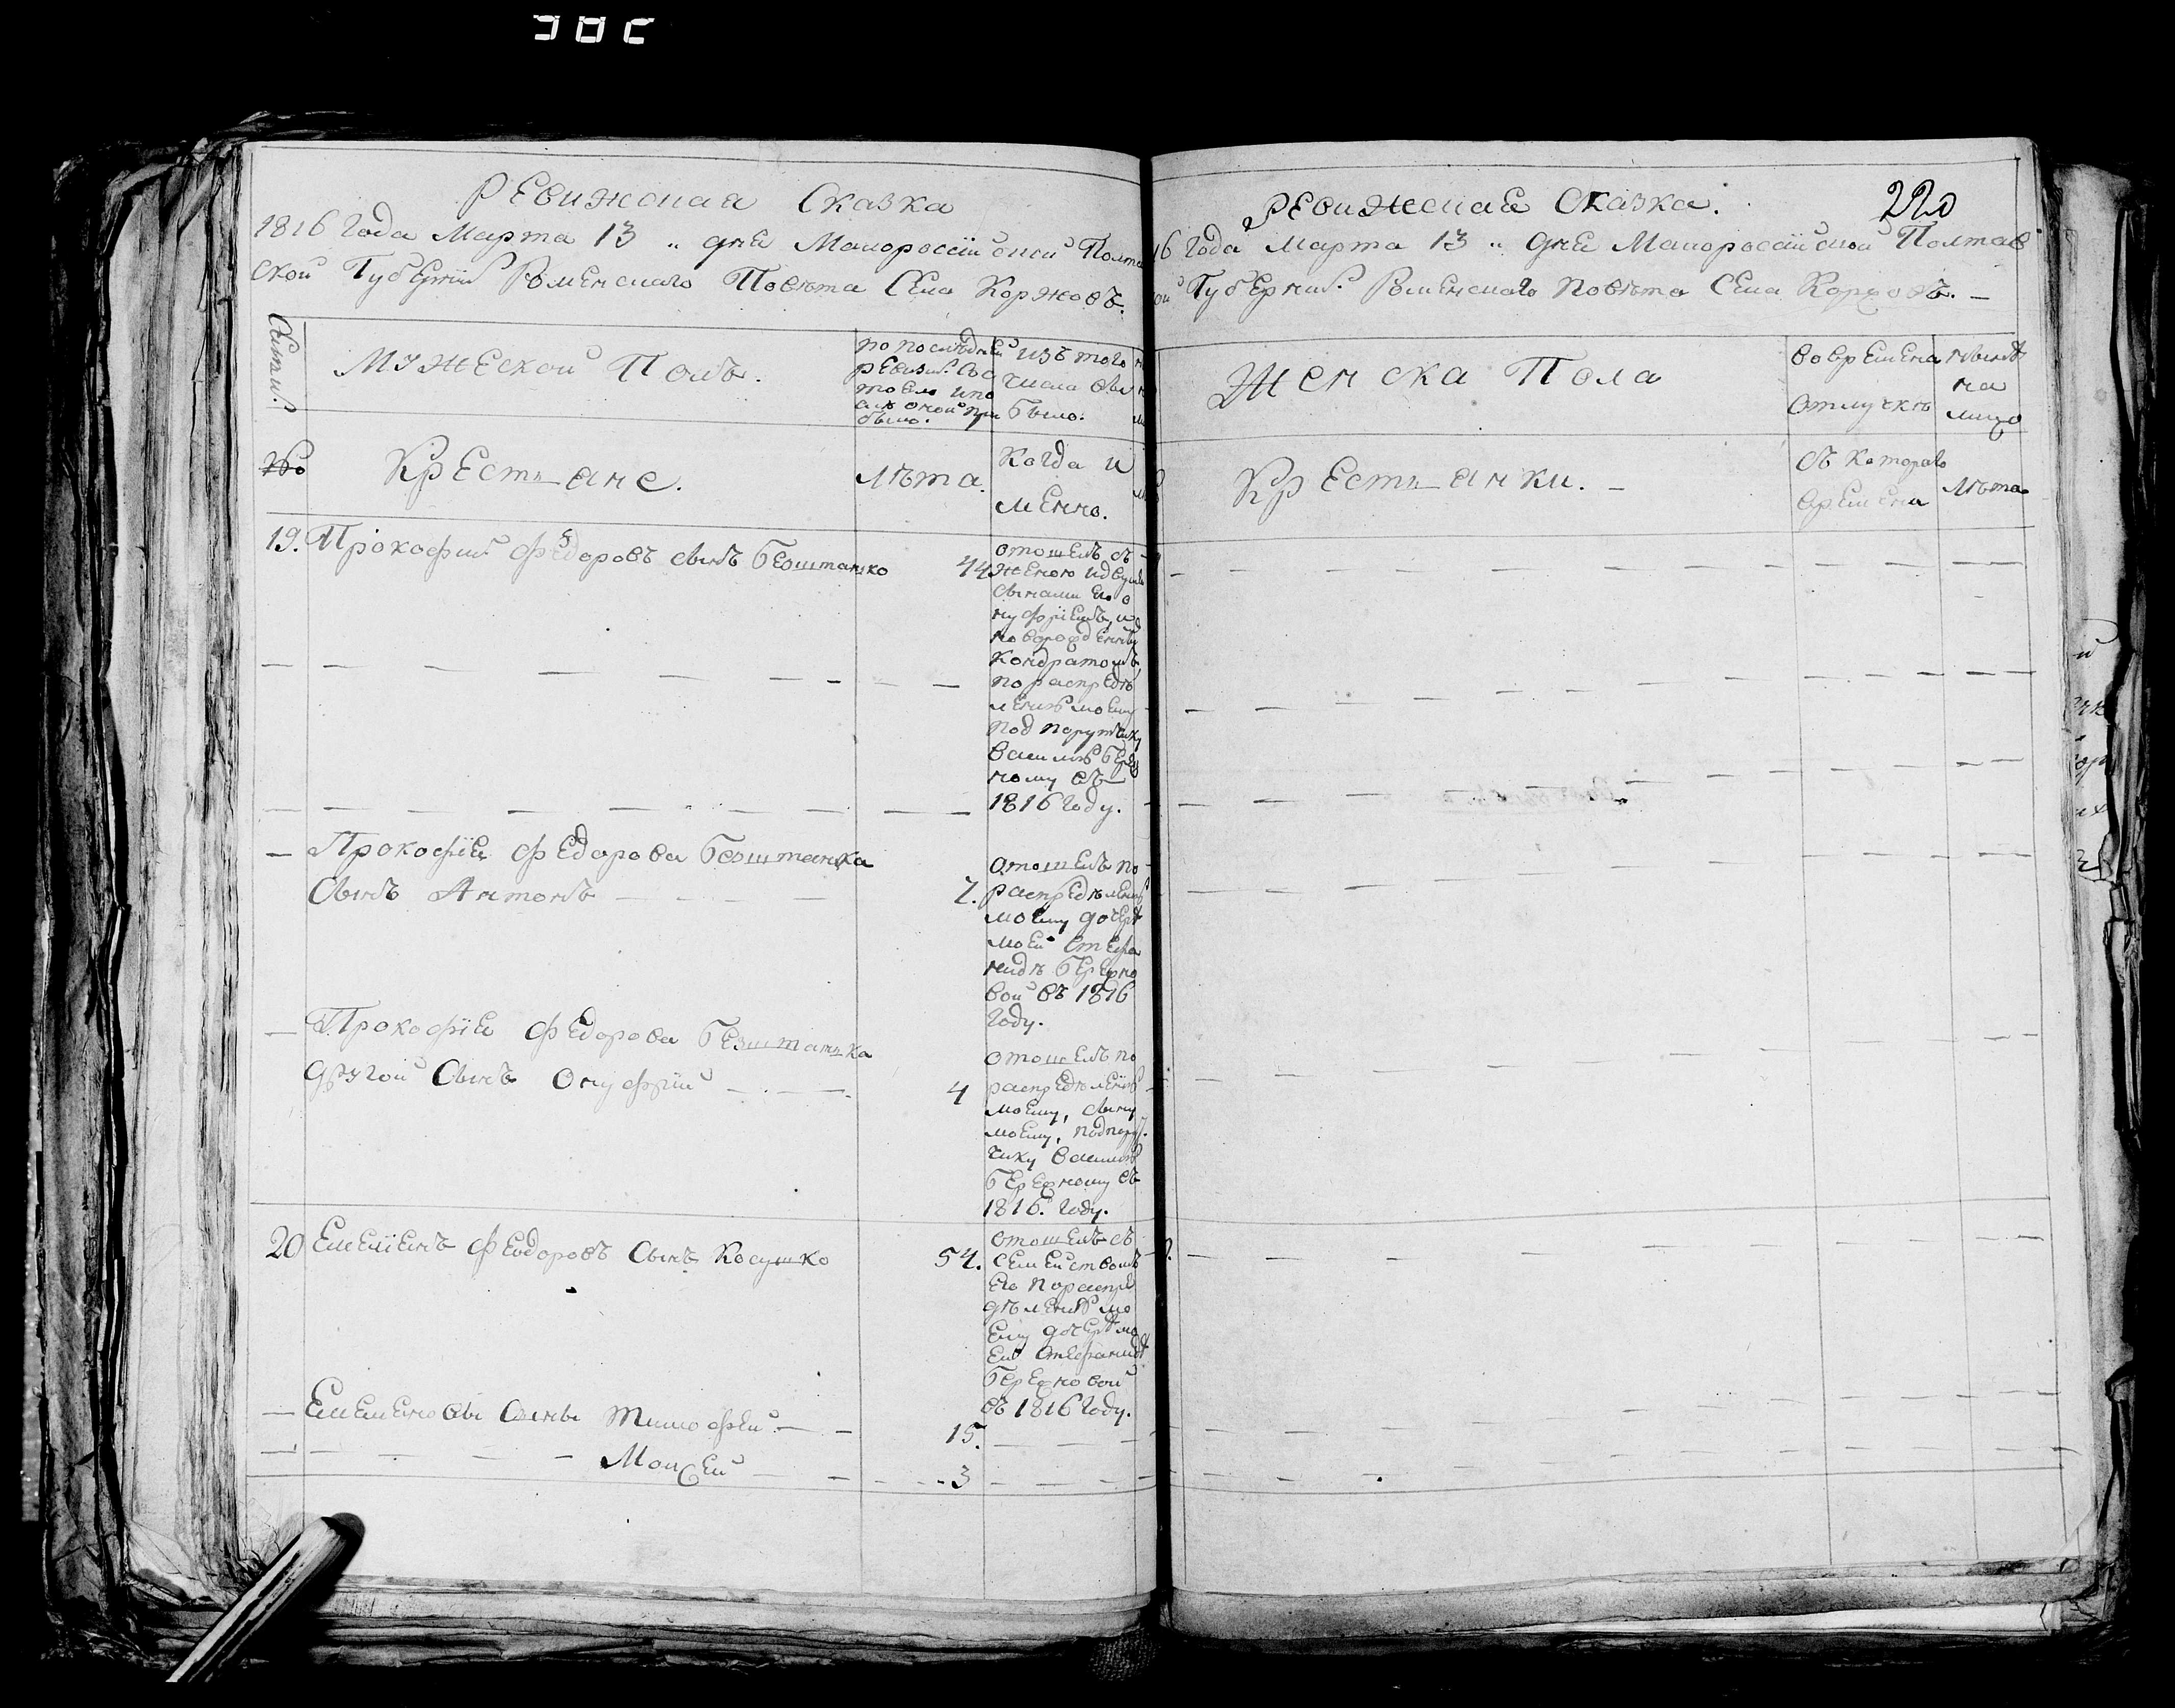 Ревижская Сказка
1816 Года Марта 13 „ дня Малороссійской Полта
ской Губерніи Роменскаго Повѣта Села Коржовъ.
Семьи.
Мужеской Полъ.
по послѣдней
ревизіи сос
тояло и по
слѣ оной при
было.
изъ того
числа вы
было.
№
Крестьяне.
лѣта.
Когда и
менно.
19. Прокофій Федоровъ сынъ Бештанько
44
отошелъ съ
женою и двумя
сынами его о
нуфріемъ, и
новорожденнымъ
Кондратомъ,
по распредѣ
ленію моему
подпоручику
Василію Береж
ному въ
1816 году.
Прокофія Федорова Бештанька
Сынъ Антонъ
7.
отошелъ по
распредѣленію
моему дочерѣ
моей Стефа
нидѣ Бережно
вой въ 1816
году.
Прокофія Федорова Безштанька
другой Сынъ Онуфрій
4
отошелъ по
распредѣленію
моему, сыну
моему, подпору
чику Василію
Бережному въ
1816. году.
20 Емеліянъ Федоровъ Сынъ Косушко
54.
отошелъ съ
семействомъ
его по распре
дѣленію мо
ему дочерѣ мо
ей Стефанидѣ
Бережновой
въ 1816 году.
Емеляновы Сыны Тимофей
15.
Моисей
3
Ревижская Сказка.
220
16 Года Марта 13 „ дня Малороссійской Полтав
ой Губерніи. Роменскаго повѣта Села Коржовъ.
Женска Пола
во времена
отлучкѣ
нынѣ
на
лицо
Крестьянки.
съ котораго
времени
лѣта